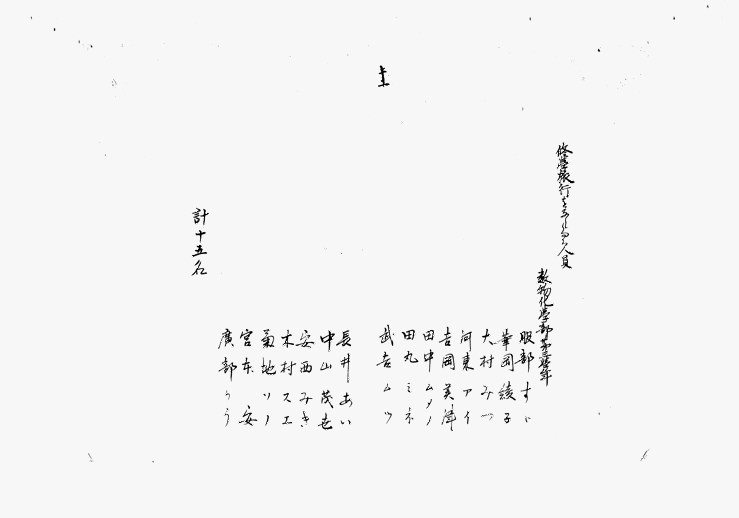 修學旅行を
人員
數物化學部第三學年
服部すゞ
華岡綾子
大村みつ
河東アイ
吉岡美津
田中ムメノ
田丸ミネ
武吉ムツ
長井あい
中山茂世
安西みき
木村スエ
菊地ソノ
宮本安
廣部りう
計十五名